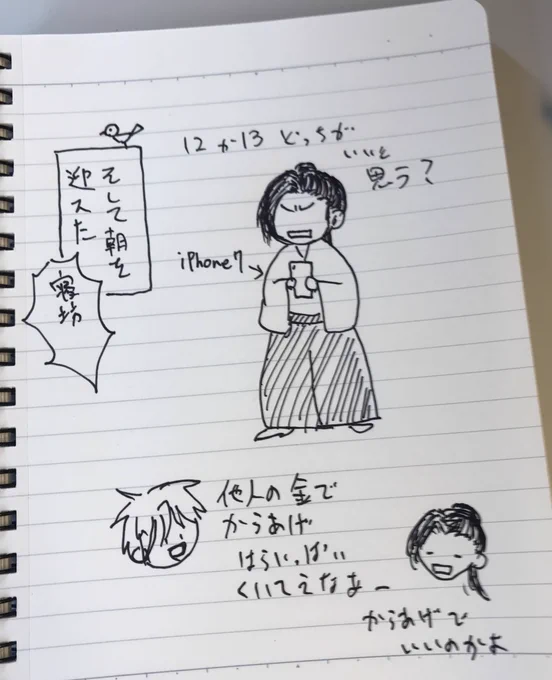 12か13 どっちが
いいと
思う?
そして朝を
迎えた
寝坊
iPhone7
他人の金で
からあげ
はらいっぱい
くいてえなぁー
からあげで
いいのかよ